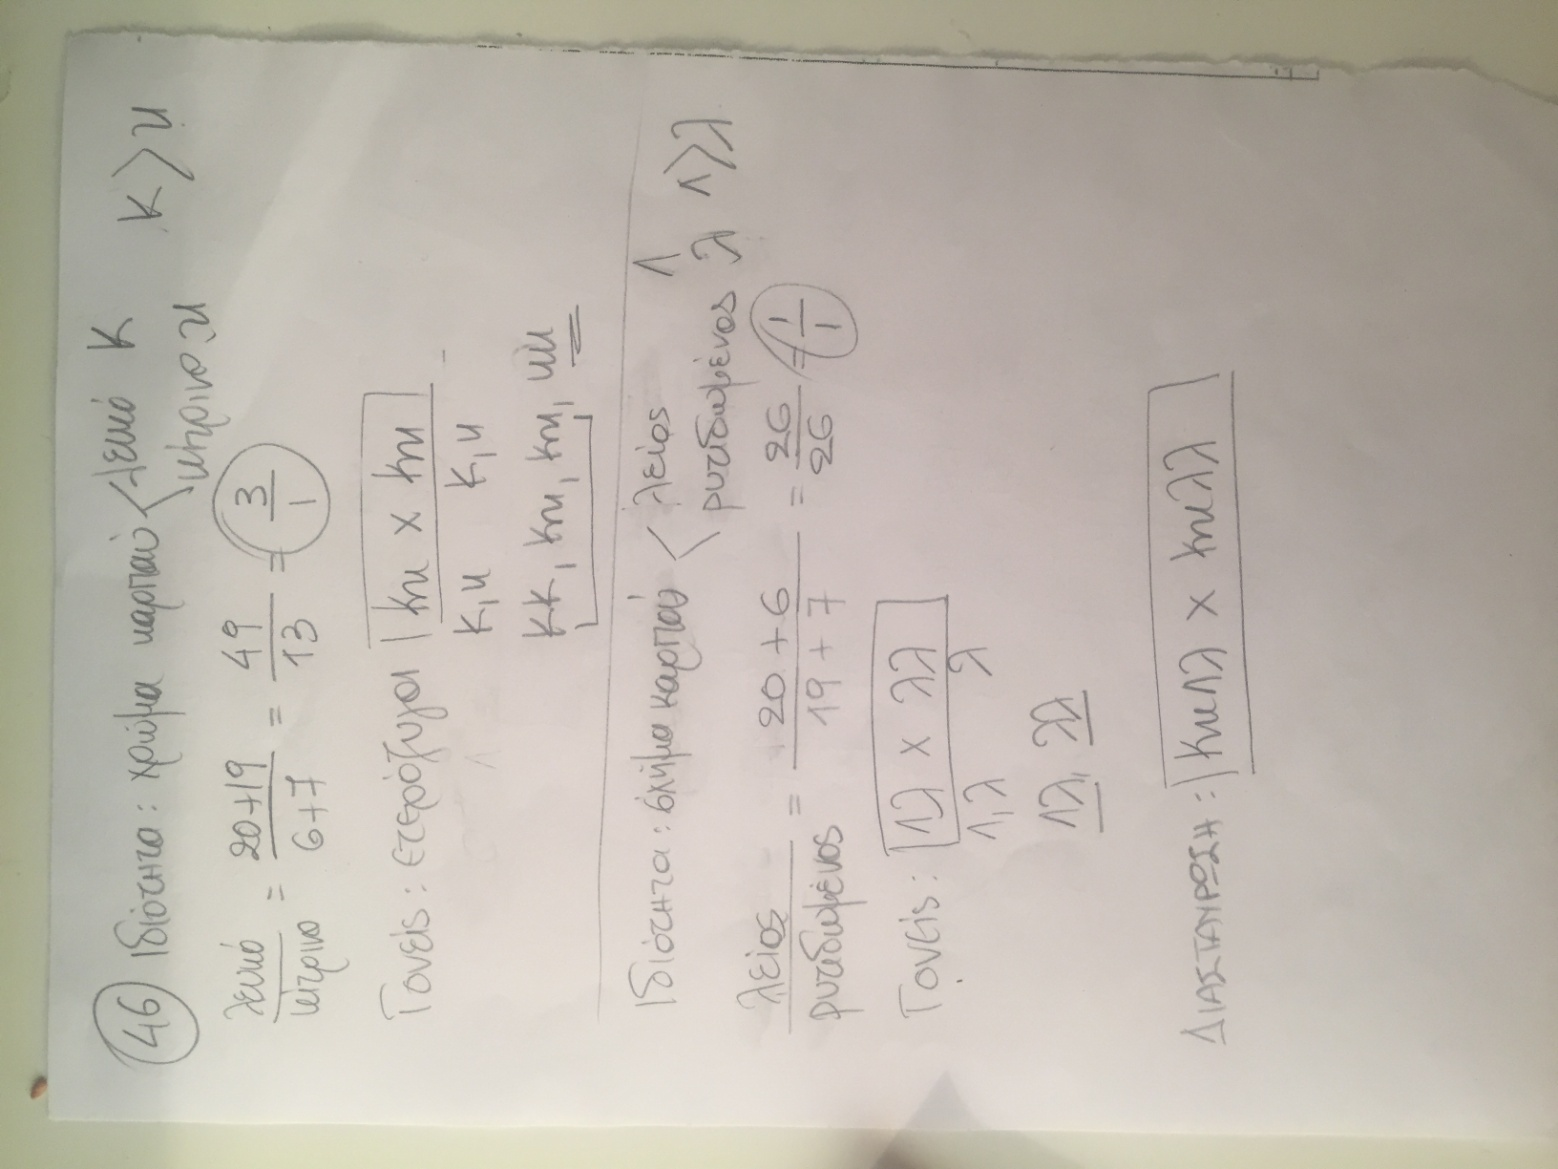 46 Ιδιότητα: χρώμα καρπού < λευκό Κ Κ>κ
κίτρινο: κ
λευκό/κίτρινο = 20+19/6+7 = 49/13 = 3/1
Γονείς: ετερόζυγοι Κκ x Κκ
Κ,κ Κ,κ
ΚΚ, Κκ, Κκ, κκ
Ιδιότητα: σχήμα καρπού < λείος Λ
ρυτιδωμένος λ Λ>λ
λείος/ρυτιδωμένος = 20+6/19+7 = 26/26 = 1/1
Γονείς: Λλ x λλ
Λ,λ λ
Λλ, λλ
ΔΙΑΣΤΑΥΡΩΣΗ: ΚκΛλ x Κκλλ